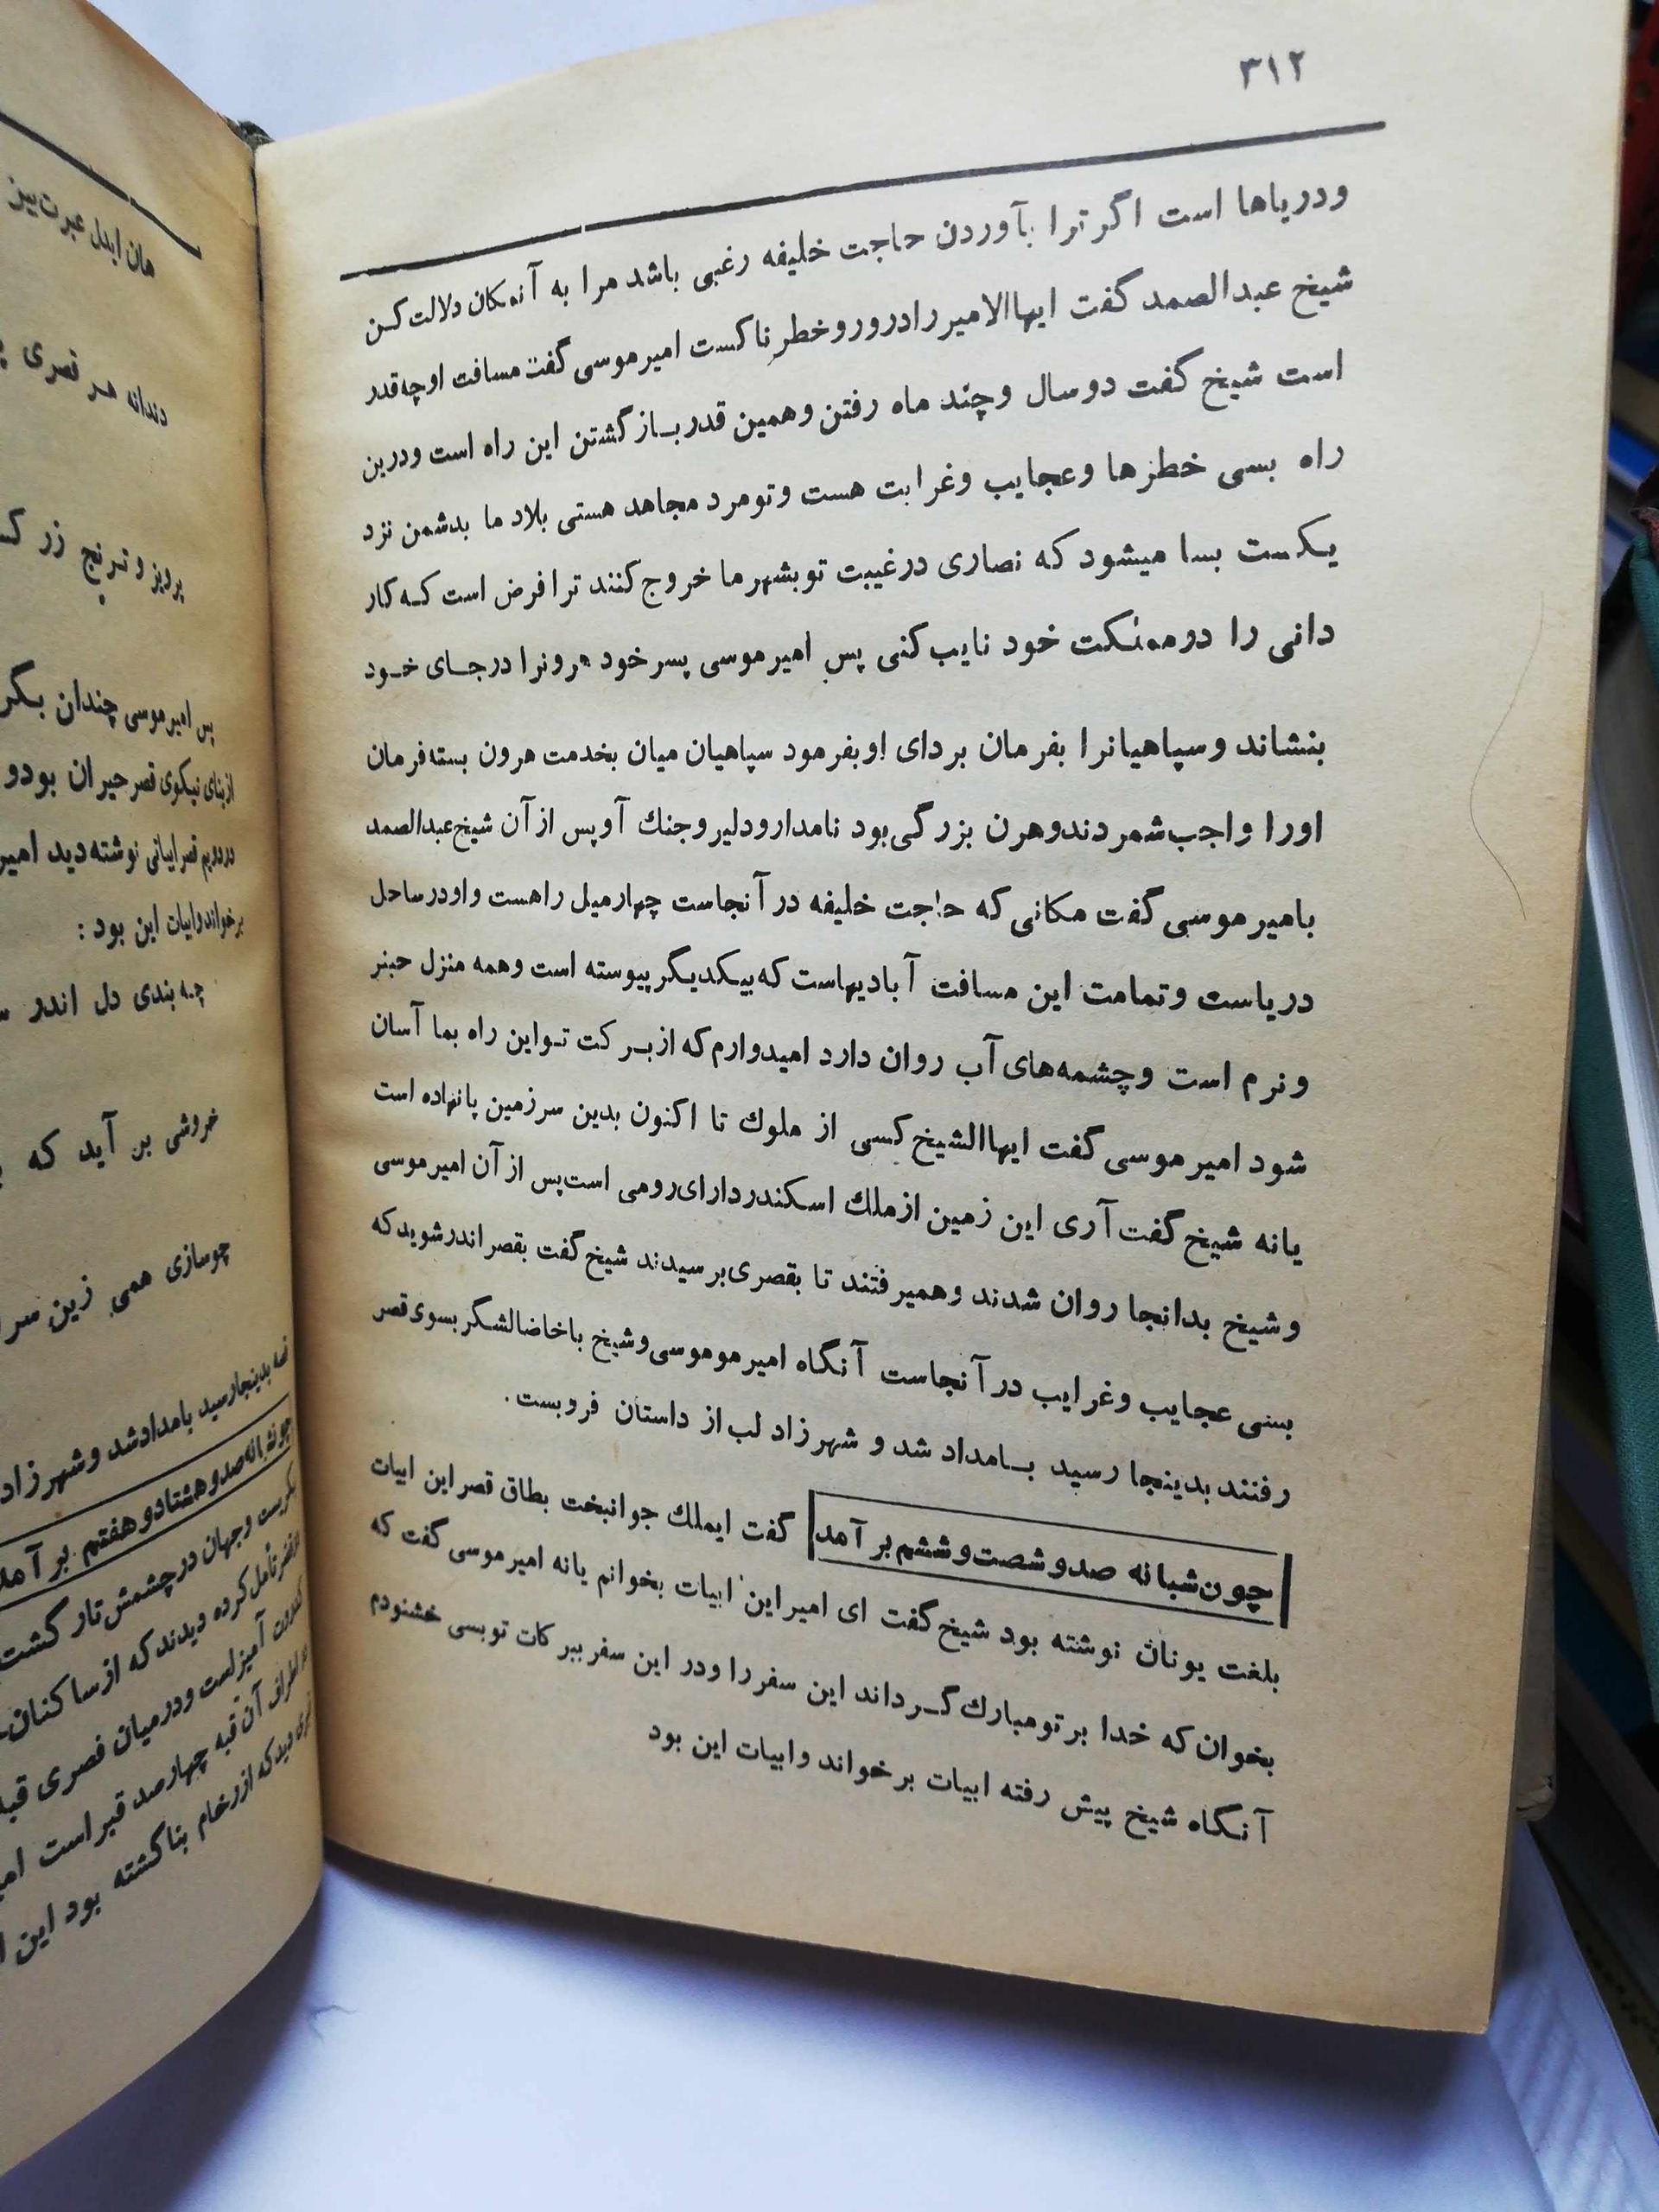 ۳۱۲
ودریاها است اگر ترا بآوردن حاجت خلیفه رغبی باشد مرا به آنمکان دلالت کن
شیخ عبدالصمد گفت ایهاالامیر رادرورو خطرناکست امیرموسی گفت مسافت اوچه‌قدر
است شیخ گفت دوسال وچند ماه رفتن وهمین قدر بازگشتن این راه است ودرین
راه بسی خطرها وعجایب وغرابت هست وتومرد مجاهد هستی بلاد ما بدشمن نزد
یکست بسا میشود که نصاری درغیبت توبشهرما خروج کنند ترافرض است که کار
دانی را دومملکت خود نایب کنی پس امیرموسی پسرخود هرونرا درجای خود
بنشاند وسپاهیانرا بفرمان بردای اوبفرمود سپاهیان میان بخدمت هرون بسته‌فرمان
اورا واجب‌شمردندوهرن بزرگی‌بود نامدارودلیروجنك آوپس ازآن شیخ‌عبدالصمد
بامیرموسی گفت مکانی که حاجت خلیفه درآنجاست چهارمیل راهست واودرساحل
دریاست وتمامت این مسافت آبادیهاست که‌بیکدیگرپیوسته است وهمه منزل حبنر
ونرم است وچشمه‌های آب روان دارد امیدوارم‌که ازبرکت تواین راه بما آسان
شود امیرموسی گفت ایهاالشیخ کسی از ملوك تا اکنون بدین سرزمین پانهاده است
یانه شیخ گفت آری این زمین ازملك اسکندردارای‌رومی است‌پس ازآن امیرموسی
وشیخ بدانجا روان شدند وهمیرفتند تا بقصری‌برسیدند شیخ گفت بقصر اندرشوید که
بسی عجایب وغرایب درآنجاست آنگاه امیرموموسی‌وشیخ باخاضالشگر بسوی‌قصر
رفتند بدینجا رسید بامداد شد و شهرزاد لب‌از داستان فروبست.
چون‌شبانه صدوشصت‌وششم‌برآمد گفت ایملك جوانبخت بطاق قصراین ابیات
بلغت یونان نوشته بود شیخ گفت ای امیراین ابیات بخوانم یانه امیرموسی گفت که
بخوان‌که خدا برتومبارك گرداند این سفررا ودر این سفر ببرکات توبسی خشنودم
آنگاه شیخ پیش رفته ابیات برخواند وابیات این بود
هان ایدل عبرت‌بین
دندانه هر قصری
پرویز و ترنج زر
پس امیرموسی چندان
ازبنای نیکوی قصرحیران بودو
نوشته‌دید امیر
برخواندوابیات این بود :
چه‌بندی دل اندر
خروشی بر آید که
چوسازی همی زین سر
قصه بدینجارسید بامدادشد وشهرزاد
چونشبانه‌صدوهشتادوهفتم برآمد
بگریست وجهان درچشمش‌تارگشت
تأمل‌کرده دیدندکه ازساکنان
ودرمیان قصری
اطراف آن‌قبه چهارصد قبراست
دیدکه ازرخام بناگشته بود این